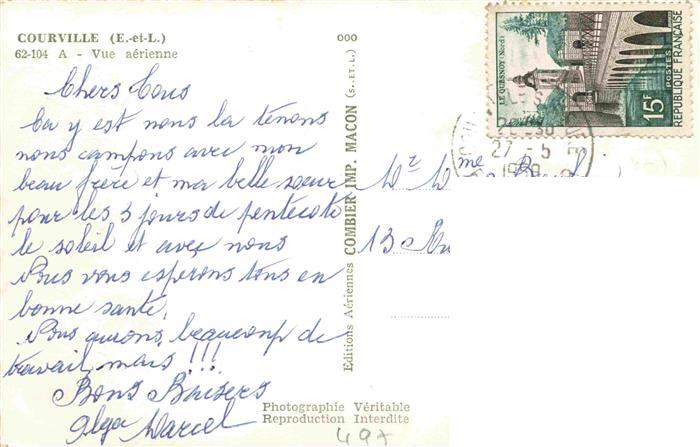 COURVILLE (E.-et-L.)
62-104 A - Vue aérienne
Chers Tous
Ca y est nous la tenons
nous campons avec mon
beau frère et ma belle sœur
pour les 3 jours de pentecote
le soleil et avec nous
Nous vous esperons tous en
bonne santé.
Nous aurons beaucoup de
travail mais !!!
Bons Baisers
Olga Marcel
000
Editions Aériennes COMBIER IMP. MACON (S.-ET-L.)
Photographie Véritable
Reproduction Interdite
497
LE QUESNOY (Nord)
15F
POSTES
REPUBLIQUE FRANÇAISE
27 - 5
Mr Mme
13